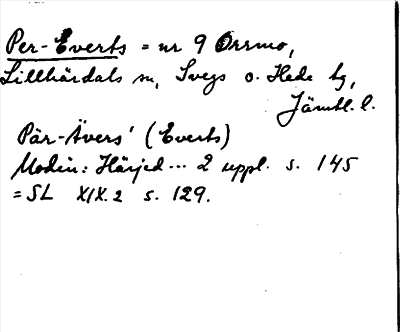 Per-Everts = nr 9 Orrmo,
Lillhärdals sn, Svegs o. Hede tg,
Jämtl. l.
Pär-Ävers' (Everts)
Modin: Härjed... 2 uppl. s. 145
= SL XIX.2 s. 129.